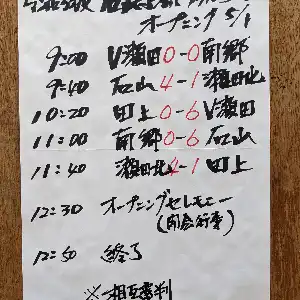 オープニング 5/1
9:00 V瀬田 0-0 南郷
9:40 石山 4-1 瀬田北
10:20 田上 0-6 V瀬田
11:00 南郷 0-6 石山
11:40 瀬田北 4-1 田上
12:30 オープニングセレモニー
(開会行事)
12:50 終了
※相互審判